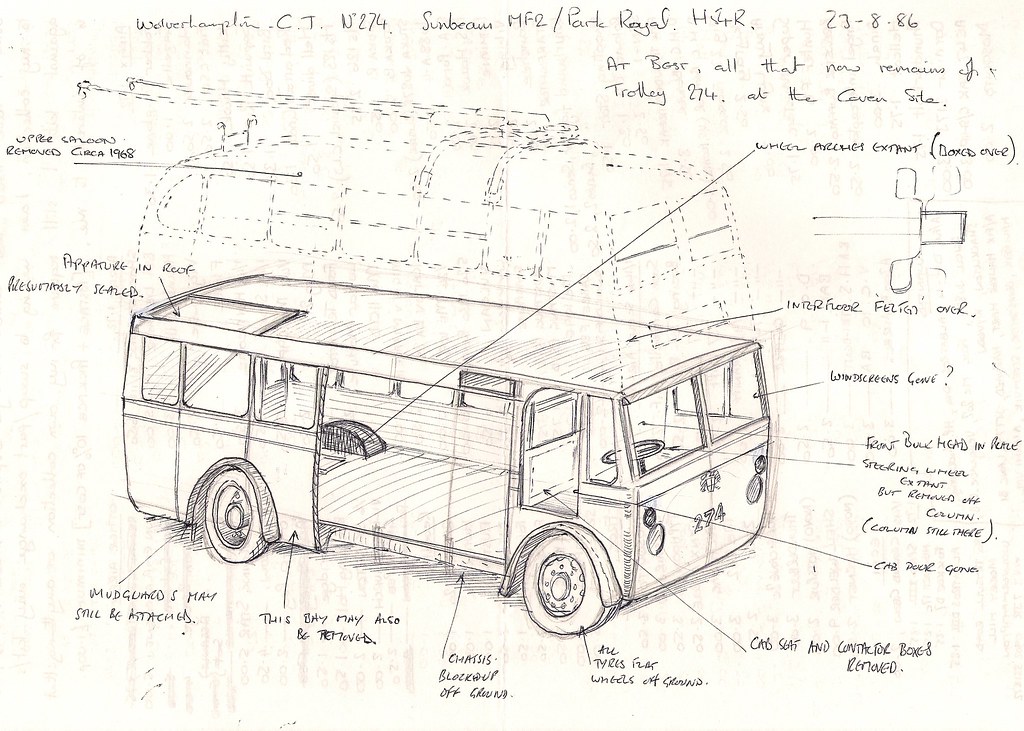 Wolverhampton C.T. No 274. Sunbeam MF2 / Park Royal. H54R. 23-8-86
AT BEST, all that now remains of
Trolley 274. at the Coven Site.
UPPER SALOON
REMOVED CIRCA 1968
WHEEL ARCHES EXTANT (BOXED OVER)
APPATURE IN ROOF
PRESUMABLY SEALED.
INTERFLOOR 'FELTED' OVER.
WINDSCREENS GONE?
FRONT BULK HEAD IN PLACE
STEERING WHEEL
EXTANT
BUT REMOVED OFF
COLUMN.
(COLUMN STILL THERE).
274
CAB DOOR GONE
MUDGUARDS MAY
STILL BE ATTACHED.
THIS BAY MAY ALSO
BE REMOVED.
CHASSIS
BLOCKED UP
OFF GROUND.
ALL
TYRES FLAT
WHEELS OFF GROUND.
CAB SEAT AND CONTACTOR BOXES
REMOVED.